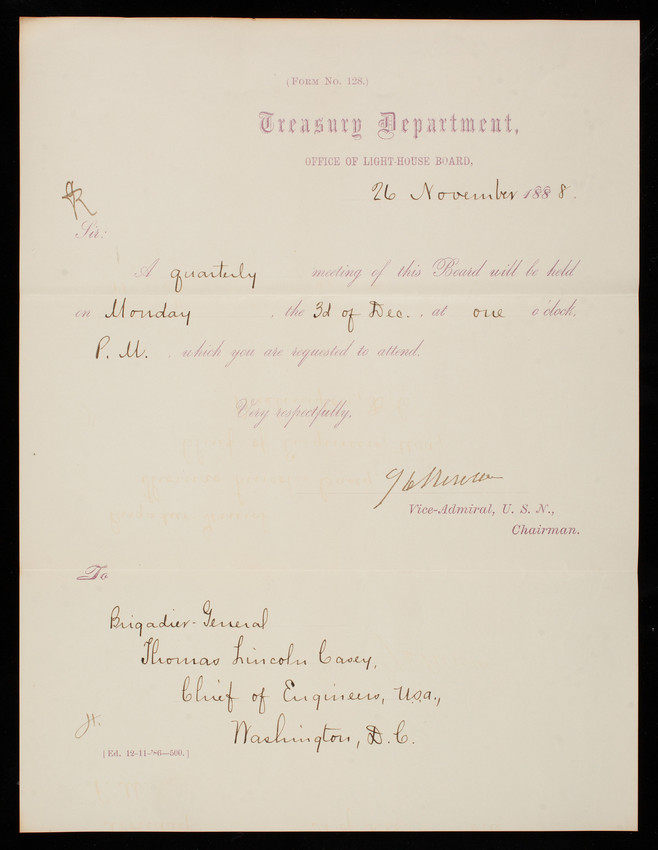 (FORM No. 128.)
Treasury Department,
OFFICE OF LIGHT-HOUSE BOARD,
26 November 1888.
Sir:
A quarterly meeting of this Board will be held
on Monday, the 3d of Dec., at one o'clock,
P. M., which you are requested to attend.
Very respectfully,
Vice-Admiral, U. S. N.,
Chairman.
To
Brigadier-General
Thomas Lincoln Casey,
Chief of Engineers, U.S.A.,
Washington, D.C.
[Ed. 12-11-'86—500.]